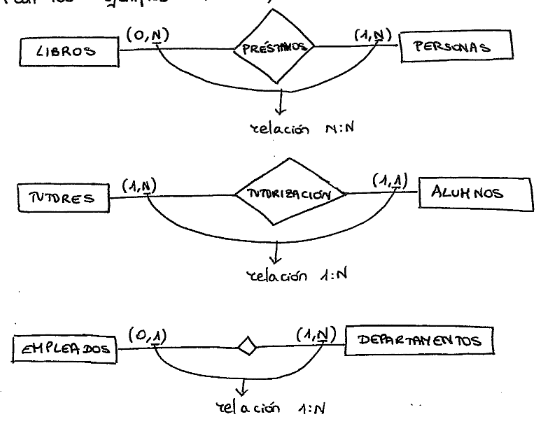 LIBROS (0,N) PRÉSTAMOS (1,N) PERSONAS
relación N:N
TUTORES (1,N) TUTORIZACIÓN (1,1) ALUMNOS
relación 1:N
EMPLEADOS (0,1) (1,N) DEPARTAMENTOS
relación 1:N